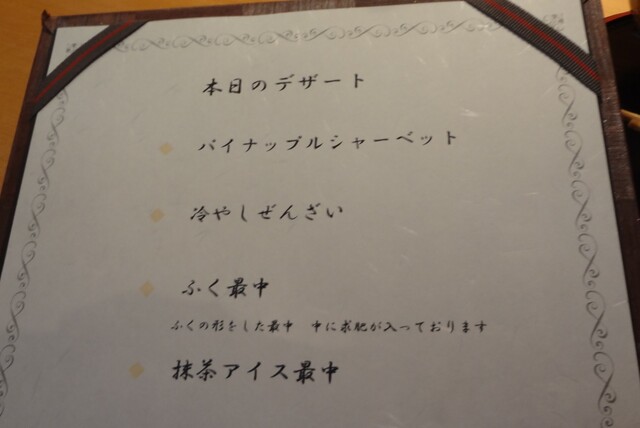 本日のデザート
パイナップルシャーベット
冷やしぜんざい
ふく最中
ふくの形をした最中　中に求肥が入っております
抹茶アイス最中